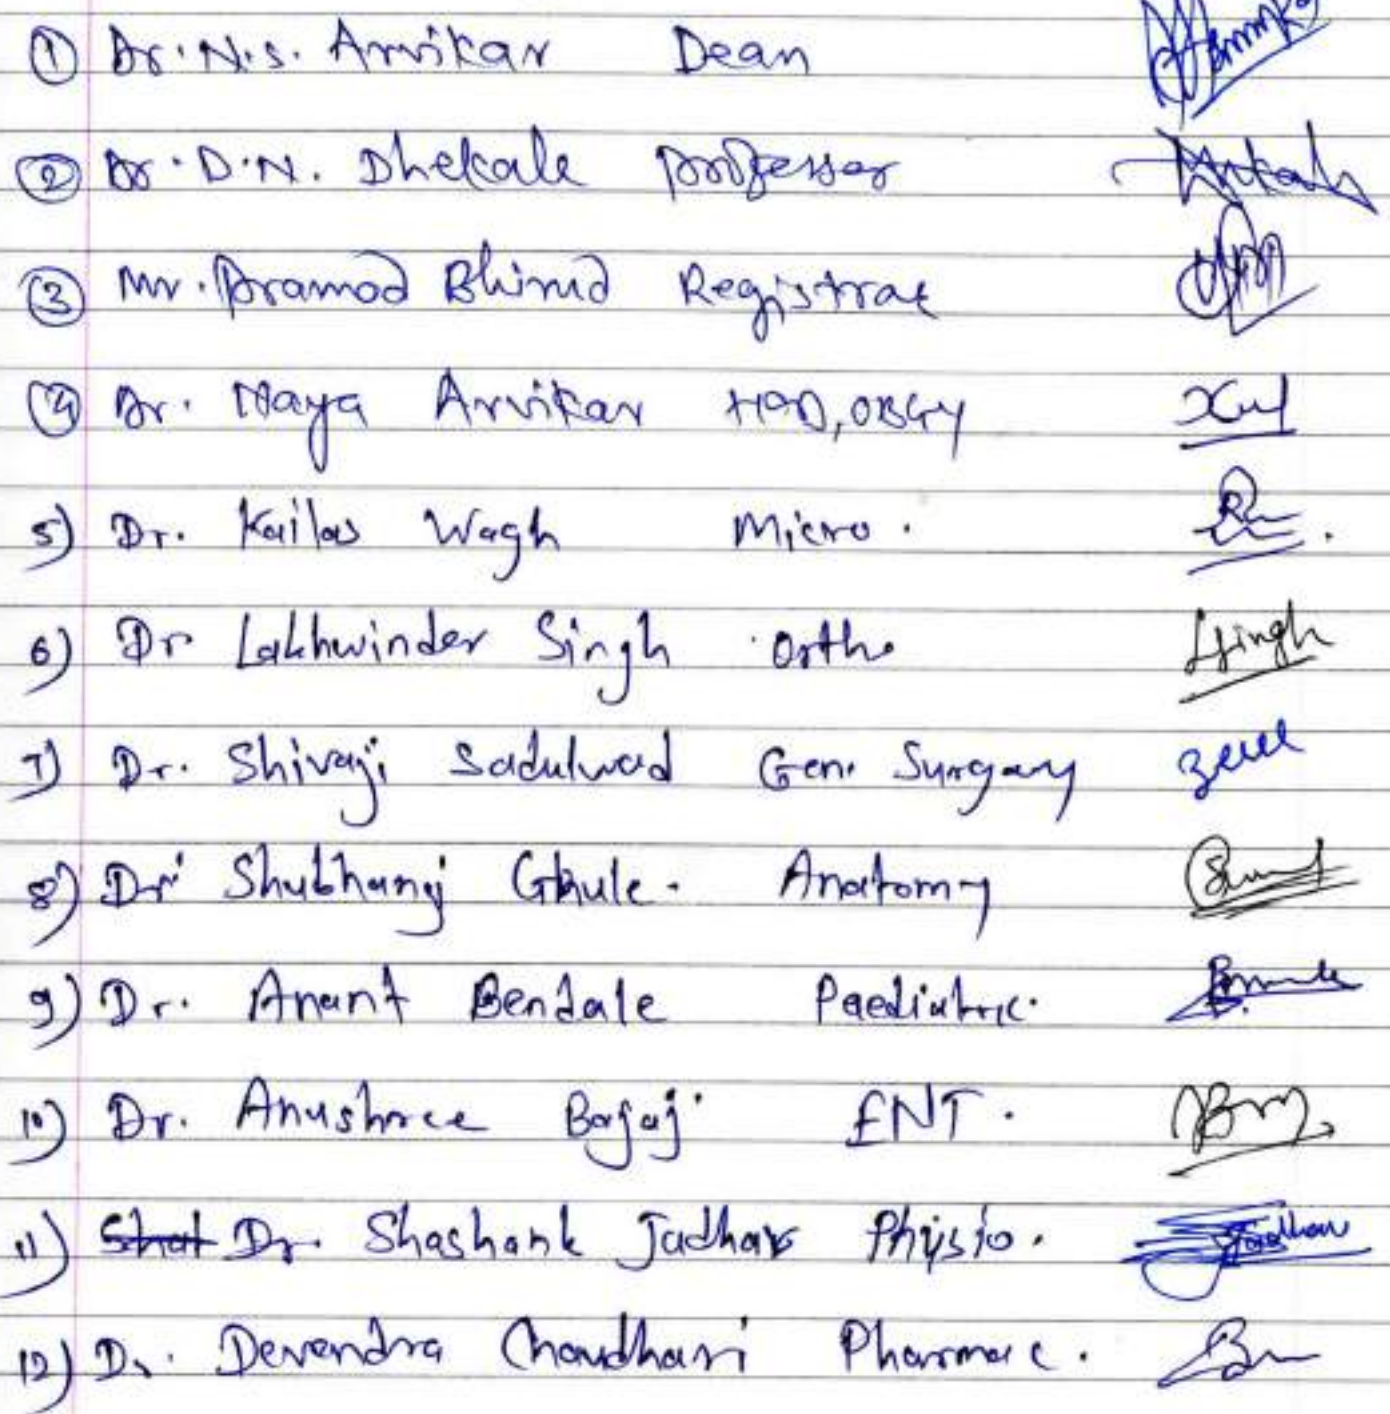 ① Dr. N.S. Arvikar Dean
② Dr. D.N. Dhekale Professor
③ Mr. Pramod Bhirud Registrar
④ Dr. Maya Arvikar HOD, OBGY
5) Dr. Kailas Wagh Micro.
6) Dr Lakhwinder Singh Ortho Singh
7) Dr. Shivaji Sadulwad Gen. Surgary
8) Dr. Shubhangi Ghule. Anatomy
9) Dr. Anant Bendale Paediatric.
10) Dr. Anushree Bajaj ENT.
11) Dr. Shashank Jadhav Physio. Jadhav
12) Dr. Devendra Choudhari Pharmac.